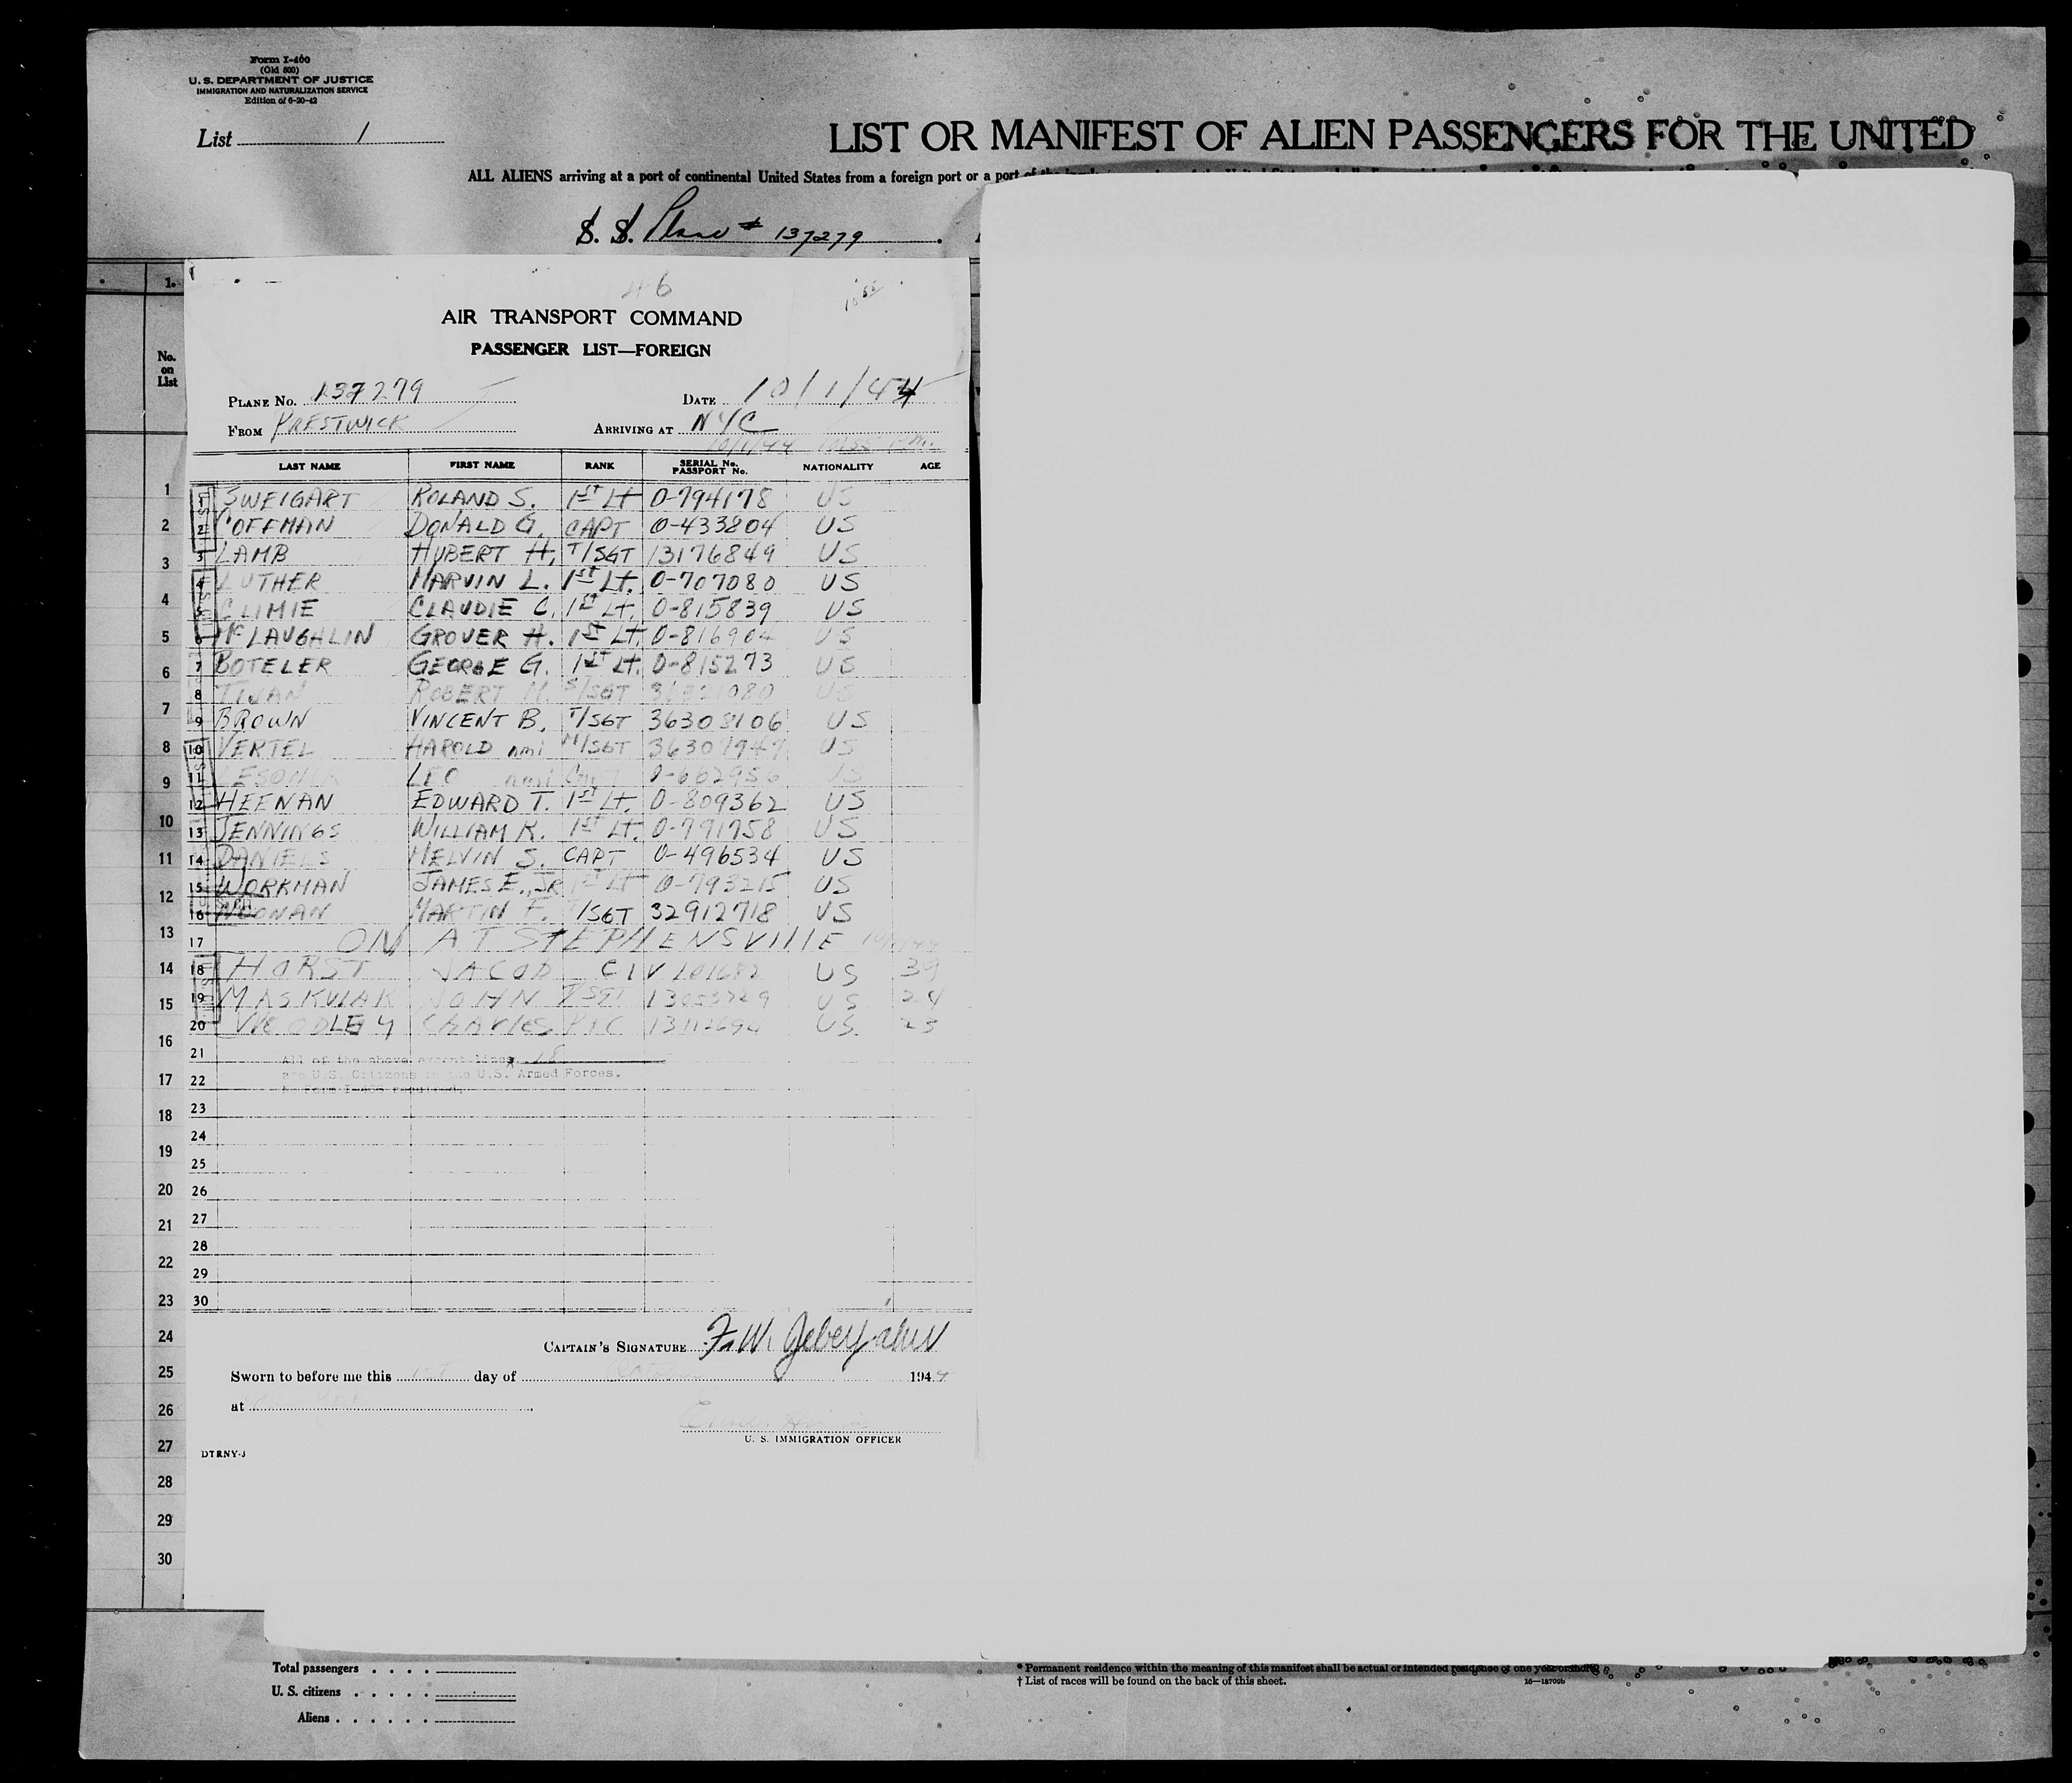 Form I-400
(Old 500)
U. S. DEPARTMENT OF JUSTICE
IMMIGRATION AND NATURALIZATION SERVICE
Edition of 6-20-42
List 1
LIST OR MANIFEST OF ALIEN PASSENGERS FOR THE UNITED
ALL ALIENS arriving at a port of continental United States from a foreign port or a port of the
S. S. Plane # 137279
1.
No. on List
46
10 55
AIR TRANSPORT COMMAND
PASSENGER LIST—FOREIGN
PLANE No. 137279 DATE 10/1/44
FROM PRESTWICK ARRIVING AT NYC
10/1/44 10:55 P.M.
LAST NAME FIRST NAME RANK SERIAL No. PASSPORT No. NATIONALITY AGE
1 SWEIGART ROLAND S. 1ST LT O-794178 US
2 COFFMAN DONALD G. CAPT O-433804 US
3 LAMB HUBERT H. T/SGT 13176849 US
4 LUTHER MARVIN L. 1ST LT. O-707080 US
5 CLIMIE CLAUDIE C. 1ST LT. O-815839 US
6 McLAUGHLIN GROVER H. 1ST LT. O-816904 US
7 BOTELER GEORGE G. 1ST LT. O-815273 US
8 ROBERT S/SGT US
9 BROWN VINCENT B. T/SGT 36308106 US
10 VERTEL HAROLD nmi M/SGT 36307947 US
11 LEO nmi O-662956 US
12 HEENAN EDWARD T. 1ST LT. O-809362 US
13 JENNINGS WILLIAM K. 1ST LT. O-791758 US
14 DANIELS MELVIN S. CAPT O-496534 US
15 WORKMAN JAMES E., JR 1ST LT O-793215 US
16 NOONAN MARTIN F. T/SGT 32912718 US
17 ON AT STEPHENSVILLE
18 HORST JACOB CIV US 39
19 MASKULAK JOHN 13053729 US
20 WOODLEY CHARLES PFC 13112694 US 25
21 All of the above except lines 18
22 are U.S. Citizens in the U.S. Armed Forces.
No Form I-466 required.
23
24
25
26
27
28
29
30
CAPTAIN'S SIGNATURE F. W.
Sworn to before me this 1ST day of October 1944
at
U. S. IMMIGRATION OFFICER
DTRNY-J
1
2
3
4
5
6
7
8
9
10
11
12
13
14
15
16
17
18
19
20
21
22
23
24
25
26
27
28
29
30
Total passengers
U. S. citizens
Aliens
* Permanent residence within the meaning of this manifest shall be actual or intended residence of one year or more.
† List of races will be found on the back of this sheet.
16—18700b